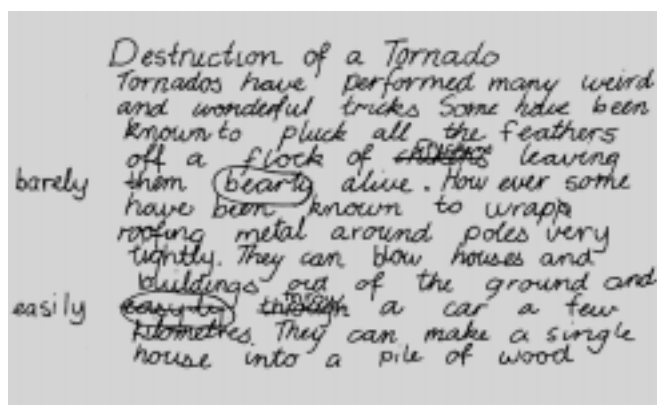 Destruction of a Tornado
Tornados have performed many weird
and wonderful tricks Some have been
known to pluck all the feathers
off a flock of leaving
barely them bearly alive. How ever some
have been known to wrapp
roofing metal around poles very
tightly. They can blow houses and
buildings out of the ground and
easily a car a few
kilometres. They can make a single
house into a pile of wood